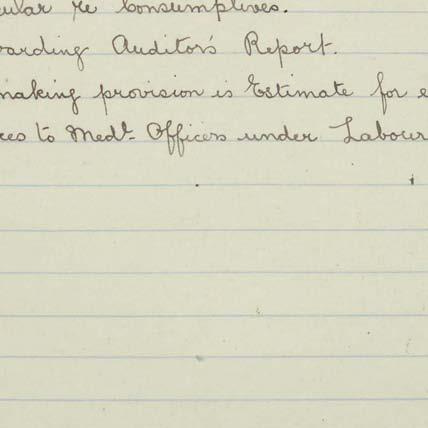 cular re Consumptives.
warding Auditor's Report.
making provision is Estimate for e
ees to Medl. Officers under Labour